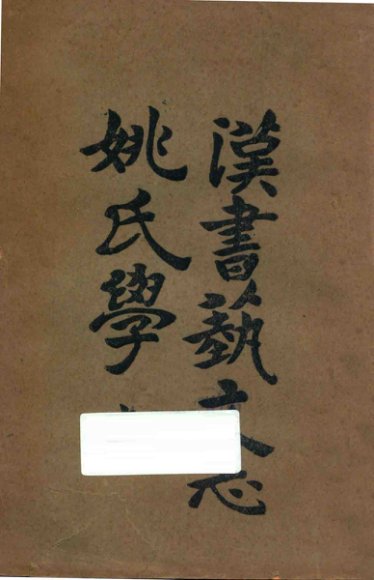 漢書藝文志
姚氏學